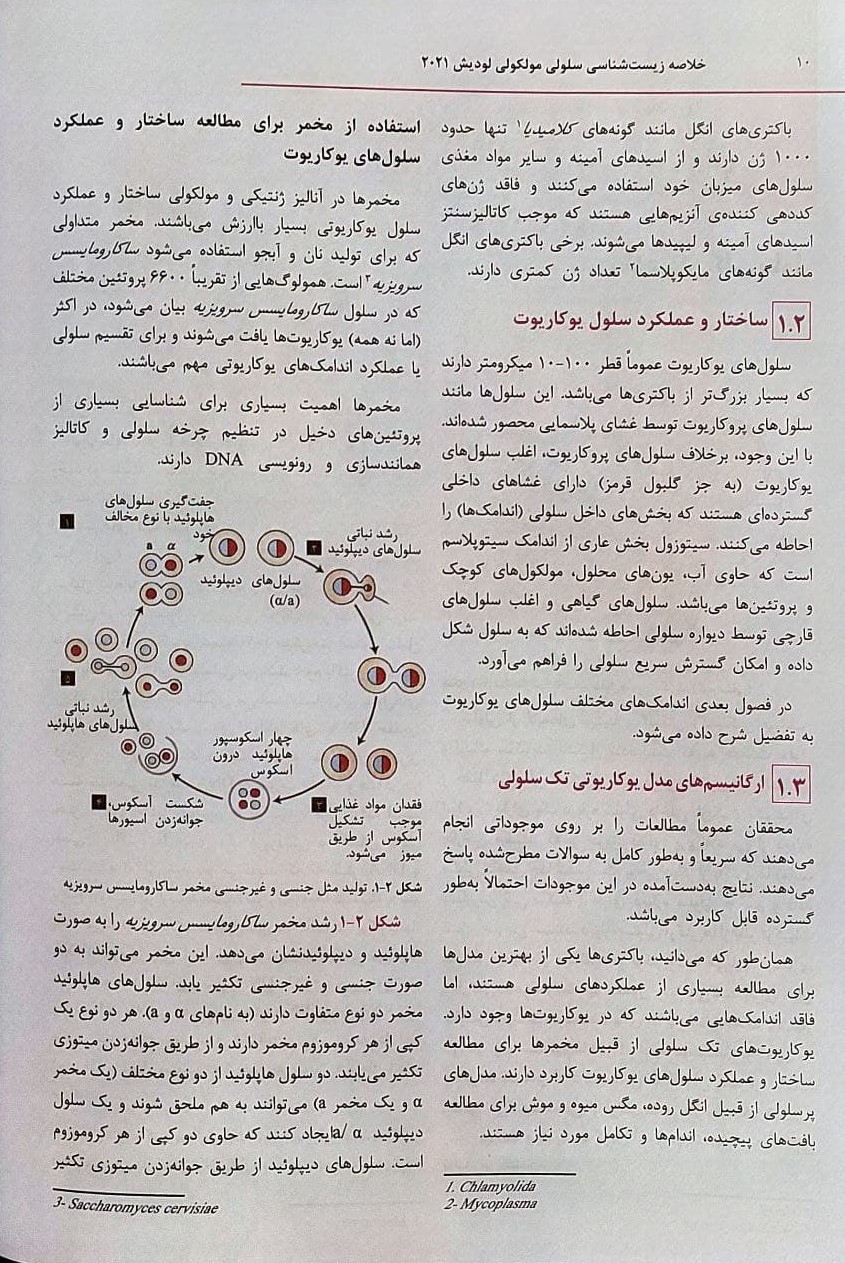 ۱۰
خلاصه زیست‌شناسی سلولی مولکولی لودیش ۲۰۲۱
باکتری‌های انگل مانند گونه‌های کلامیدیا۱ تنها حدود
۱۰۰۰ ژن دارند و از اسیدهای آمینه و سایر مواد مغذی
سلول‌های میزبان خود استفاده می‌کنند و فاقد ژن‌های
کددهی کننده‌ی آنزیم‌هایی هستند که موجب کاتالیزسنتز
اسیدهای آمینه و لیپیدها می‌شوند. برخی باکتری‌های انگل
مانند گونه‌های مایکوپلاسما۲ تعداد ژن کمتری دارند.
۱.۲ ساختار و عملکرد سلول یوکاریوت
سلول‌های یوکاریوت عموماً قطر ۱۰۰-۱۰ میکرومتر دارند
که بسیار بزرگ‌تر از باکتری‌ها می‌باشد. این سلول‌ها مانند
سلول‌های پروکاریوت توسط غشای پلاسمایی محصور شده‌اند.
با این وجود، برخلاف سلول‌های پروکاریوت، اغلب سلول‌های
یوکاریوت (به جز گلبول قرمز) دارای غشاهای داخلی
گسترده‌ای هستند که بخش‌های داخل سلولی (اندامک‌ها) را
احاطه می‌کنند. سیتوزول بخش عاری از اندامک سیتوپلاسم
است که حاوی آب، یون‌های محلول، مولکول‌های کوچک
و پروتئین‌ها می‌باشد. سلول‌های گیاهی و اغلب سلول‌های
قارچی توسط دیواره سلولی احاطه شده‌اند که به سلول شکل
داده و امکان گسترش سریع سلولی را فراهم می‌آورد.
در فصول بعدی اندامک‌های مختلف سلول‌های یوکاریوت
به تفضیل شرح داده می‌شود.
۱.۳ ارگانیسم‌های مدل یوکاریوتی تک سلولی
محققان عموماً مطالعات را بر روی موجوداتی انجام
می‌دهند که سریعاً و به‌طور کامل به سوالات مطرح‌شده پاسخ
می‌دهند. نتایج به‌دست‌آمده در این موجودات احتمالاً به‌طور
گسترده قابل کاربرد می‌باشد.
همان‌طور که می‌دانید، باکتری‌ها یکی از بهترین مدل‌ها
برای مطالعه بسیاری از عملکردهای سلولی هستند، اما
فاقد اندامک‌هایی می‌باشند که در یوکاریوت‌ها وجود دارد.
یوکاریوت‌های تک سلولی از قبیل مخمرها برای مطالعه
ساختار و عملکرد سلول‌های یوکاریوت کاربرد دارند. مدل‌های
پرسلولی از قبیل انگل روده، مگس میوه و موش برای مطالعه
بافت‌های پیچیده، اندام‌ها و تکامل مورد نیاز هستند.
1. Chlamyolida
2- Mycoplasma
استفاده از مخمر برای مطالعه ساختار و عملکرد
سلول‌های یوکاریوت
مخمرها در آنالیز ژنتیکی و مولکولی ساختار و عملکرد
سلول یوکاریوتی بسیار باارزش می‌باشند. مخمر متداولی
که برای تولید نان و آبجو استفاده می‌شود ساکارومایسس
سرویزیه۳ است. همولوگ‌هایی از تقریباً ۶۶۰۰ پروتئین مختلف
که در سلول ساکارومایسس سرویزیه بیان می‌شود، در اکثر
(اما نه همه) یوکاریوت‌ها یافت می‌شوند و برای تقسیم سلولی
یا عملکرد اندامک‌های یوکاریوتی مهم می‌باشند.
مخمرها اهمیت بسیاری برای شناسایی بسیاری از
پروتئین‌های دخیل در تنظیم چرخه سلولی و کاتالیز
همانندسازی و رونویسی DNA دارند.
۱
جفت‌گیری سلول‌های
هاپلوئید با نوع مخالف
خود
a α
سلول‌های دیپلوئید
(α/a)
۲
رشد نباتی
سلول‌های دیپلوئید
۳ فقدان مواد غذایی
موجب تشکیل
آسکوس از طریق
میوز می‌شود.
چهار اسکوسپور
هاپلوئید درون
اسکوس
۴ شکست آسکوس،
جوانه‌زدن اسپورها
۵
رشد نباتی
سلول‌های هاپلوئید
شکل ۲-۱. تولید مثل جنسی و غیرجنسی مخمر ساکارومایسس سرویزیه
شکل ۲-۱ رشد مخمر ساکارومایسس سرویزیه را به صورت
هاپلوئید و دیپلوئیدنشان می‌دهد. این مخمر می‌تواند به دو
صورت جنسی و غیرجنسی تکثیر یابد. سلول‌های هاپلوئید
مخمر دو نوع متفاوت دارند (به نام‌های α و a). هر دو نوع یک
کپی از هر کروموزوم مخمر دارند و از طریق جوانه‌زدن میتوزی
تکثیر می‌یابند. دو سلول هاپلوئید از دو نوع مختلف (یک مخمر
α و یک مخمر a) می‌توانند به هم ملحق شوند و یک سلول
دیپلوئید a/ αایجاد کنند که حاوی دو کپی از هر کروموزوم
است. سلول‌های دیپلوئید از طریق جوانه‌زدن میتوزی تکثیر
3- Saccharomyces cervisiae